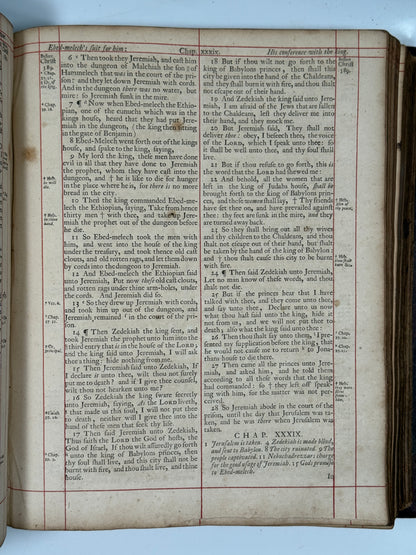 Ebed-melech's suit for him:
Chap. xxxix.
His conference with the king.
Before
Christ
589.
6 Then took they Jeremiah, and cast him
into the dungeon of Malchiah the son ‖ of
Hammelech that was in the court of the pri-
son: and they let down Jeremiah with cords.
And in the dungeon there was no water, but
mire: so Jeremiah sunk in the mire.
7 ¶ Now when Ebed-melech the Ethiopi-
an, one of the eunuchs which was in the
kings house, heard that they had put Jere-
miah in the dungeon, (the king then sitting
in the gate of Benjamin)
8 Ebed-melech went forth out of the kings
house, and spake to the king, saying,
9 My lord the king, these men have done
evil in all that they have done to Jeremiah
the prophet, whom they have cast into the
dungeon, and † he is like to die for hunger
in the place where he is, for there is no more
bread in the city.
10 Then the king commanded Ebed-me-
lech the Ethiopian, saying, Take from hence
thirty men † with thee, and take up Jere-
miah the prophet out of the dungeon before
he die.
11 So Ebed-melech took the men with
him, and went into the house of the king
under the treasury, and took thence old cast
clouts, and old rotten rags, and let them down
by cords into the dungeon to Jeremiah.
12 And Ebed-melech the Ethiopian said
unto Jeremiah, Put now these old cast clouts,
and rotten rags under thine arm-holes, under
the cords. And Jeremiah did so.
13 So they drew up Jeremiah with cords,
and took him up out of the dungeon, and
Jeremiah remained in the court of the pri-
son.
14 ¶ Then Zedekiah the king sent, and
took Jeremiah the prophet unto him into the
third entry that is in the house of the LORD;
and the king said unto Jeremiah, I will ask
thee a thing: hide nothing from me.
15 Then Jeremiah said unto Zedekiah, If
I declare it unto thee, wilt thou not surely
put me to death? and if I give thee counsel,
wilt thou not hearken unto me?
16 So Zedekiah the king sware secretly
unto Jeremiah, saying, As the LORD liveth,
that made us this soul, I will not put thee
to death, neither will I give thee into the
hand of these men that seek thy life.
17 Then said Jeremiah unto Zedekiah,
Thus saith the LORD the God of hosts, the
God of Israel, If thou wilt assuredly go forth
unto the king of Babylons princes, then
thy soul shall live, and this city shall not be
burnt with fire, and thou shalt live, and thine
house.
18 But if thou wilt not go forth to the
king of Babylons princes, then shall this
city be given into the hand of the Chaldeans,
and they shall burn it with fire, and thou shalt
not escape out of their hand.
19 And Zedekiah the king said unto Jere-
miah, I am afraid of the Jews that are fallen
to the Chaldeans, lest they deliver me into
their hand, and they mock me.
20 But Jeremiah said, They shall not
deliver thee: obey, I beseech thee, the voice
of the LORD, which I speak unto thee: so
it shall be well unto thee, and thy soul shall
live.
21 But if thou refuse to go forth, this is
the word that the LORD had shewed me:
22 And behold, all the women that are
left in the king of Judahs house, shall be
brought forth to the king of Babylons prin-
ces, and those women shall say, † Thy friends
have set thee on, and have prevailed against
thee: thy feet are sunk in the mire, and they
are turned away back.
23 So they shall bring out all thy wives
and thy children to the Chaldeans, and thou
shalt not escape out of their hand, but shalt
be taken by the hand of the king of Babylon:
and † thou shalt cause this city to be burnt
with fire.
24 ¶ Then said Zedekiah unto Jeremiah,
Let no man know of these words, and thou
shalt not die.
25 But if the princes hear that I have
talked with thee, and they come unto thee,
and say unto thee, Declare unto us now
what thou hast said unto the king, hide it
not from us, and we will not put thee to
death; also what the king said unto thee:
26 Then thou shalt say unto them, I pre-
sented my supplication before the king, that
he would not cause me to return to Jona-
thans house to die there.
27 Then came all the princes unto Jere-
miah, and asked him, and he told them
according to all these words that the king
had commanded: so † they left off speak-
ing with him, for the matter was not per-
ceived.
28 So Jeremiah abode in the court of the
prison, until the day that Jerusalem was ta-
ken, and he was there when Jerusalem was
taken.
CHAP. XXXIX.
1 Jerusalem is taken. 4 Zedekiah is made blind,
and sent to Babylon. 8 The city ruinated. 9 The
people captivated. 11 Nebuchadrezzars charge
for the good usage of Jeremiah. 15 Gods promise
to Ebed-melech.
Before
Christ
589.